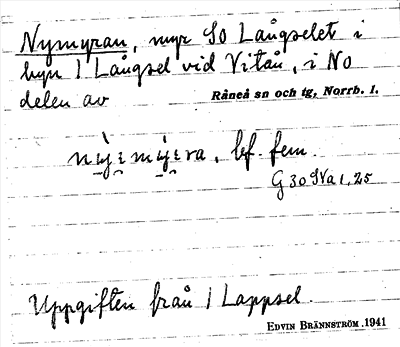 Nymyran, myr SO Långselet i
byn 1 Långsel vid Vitån, i NO
delen av Råneå sn och tg, Norrb. l.
bf. fem.
G 30 SVa 1,25
Uppgiften från 1 Lappsel.
EDVIN BRÄNNSTRÖM.1941